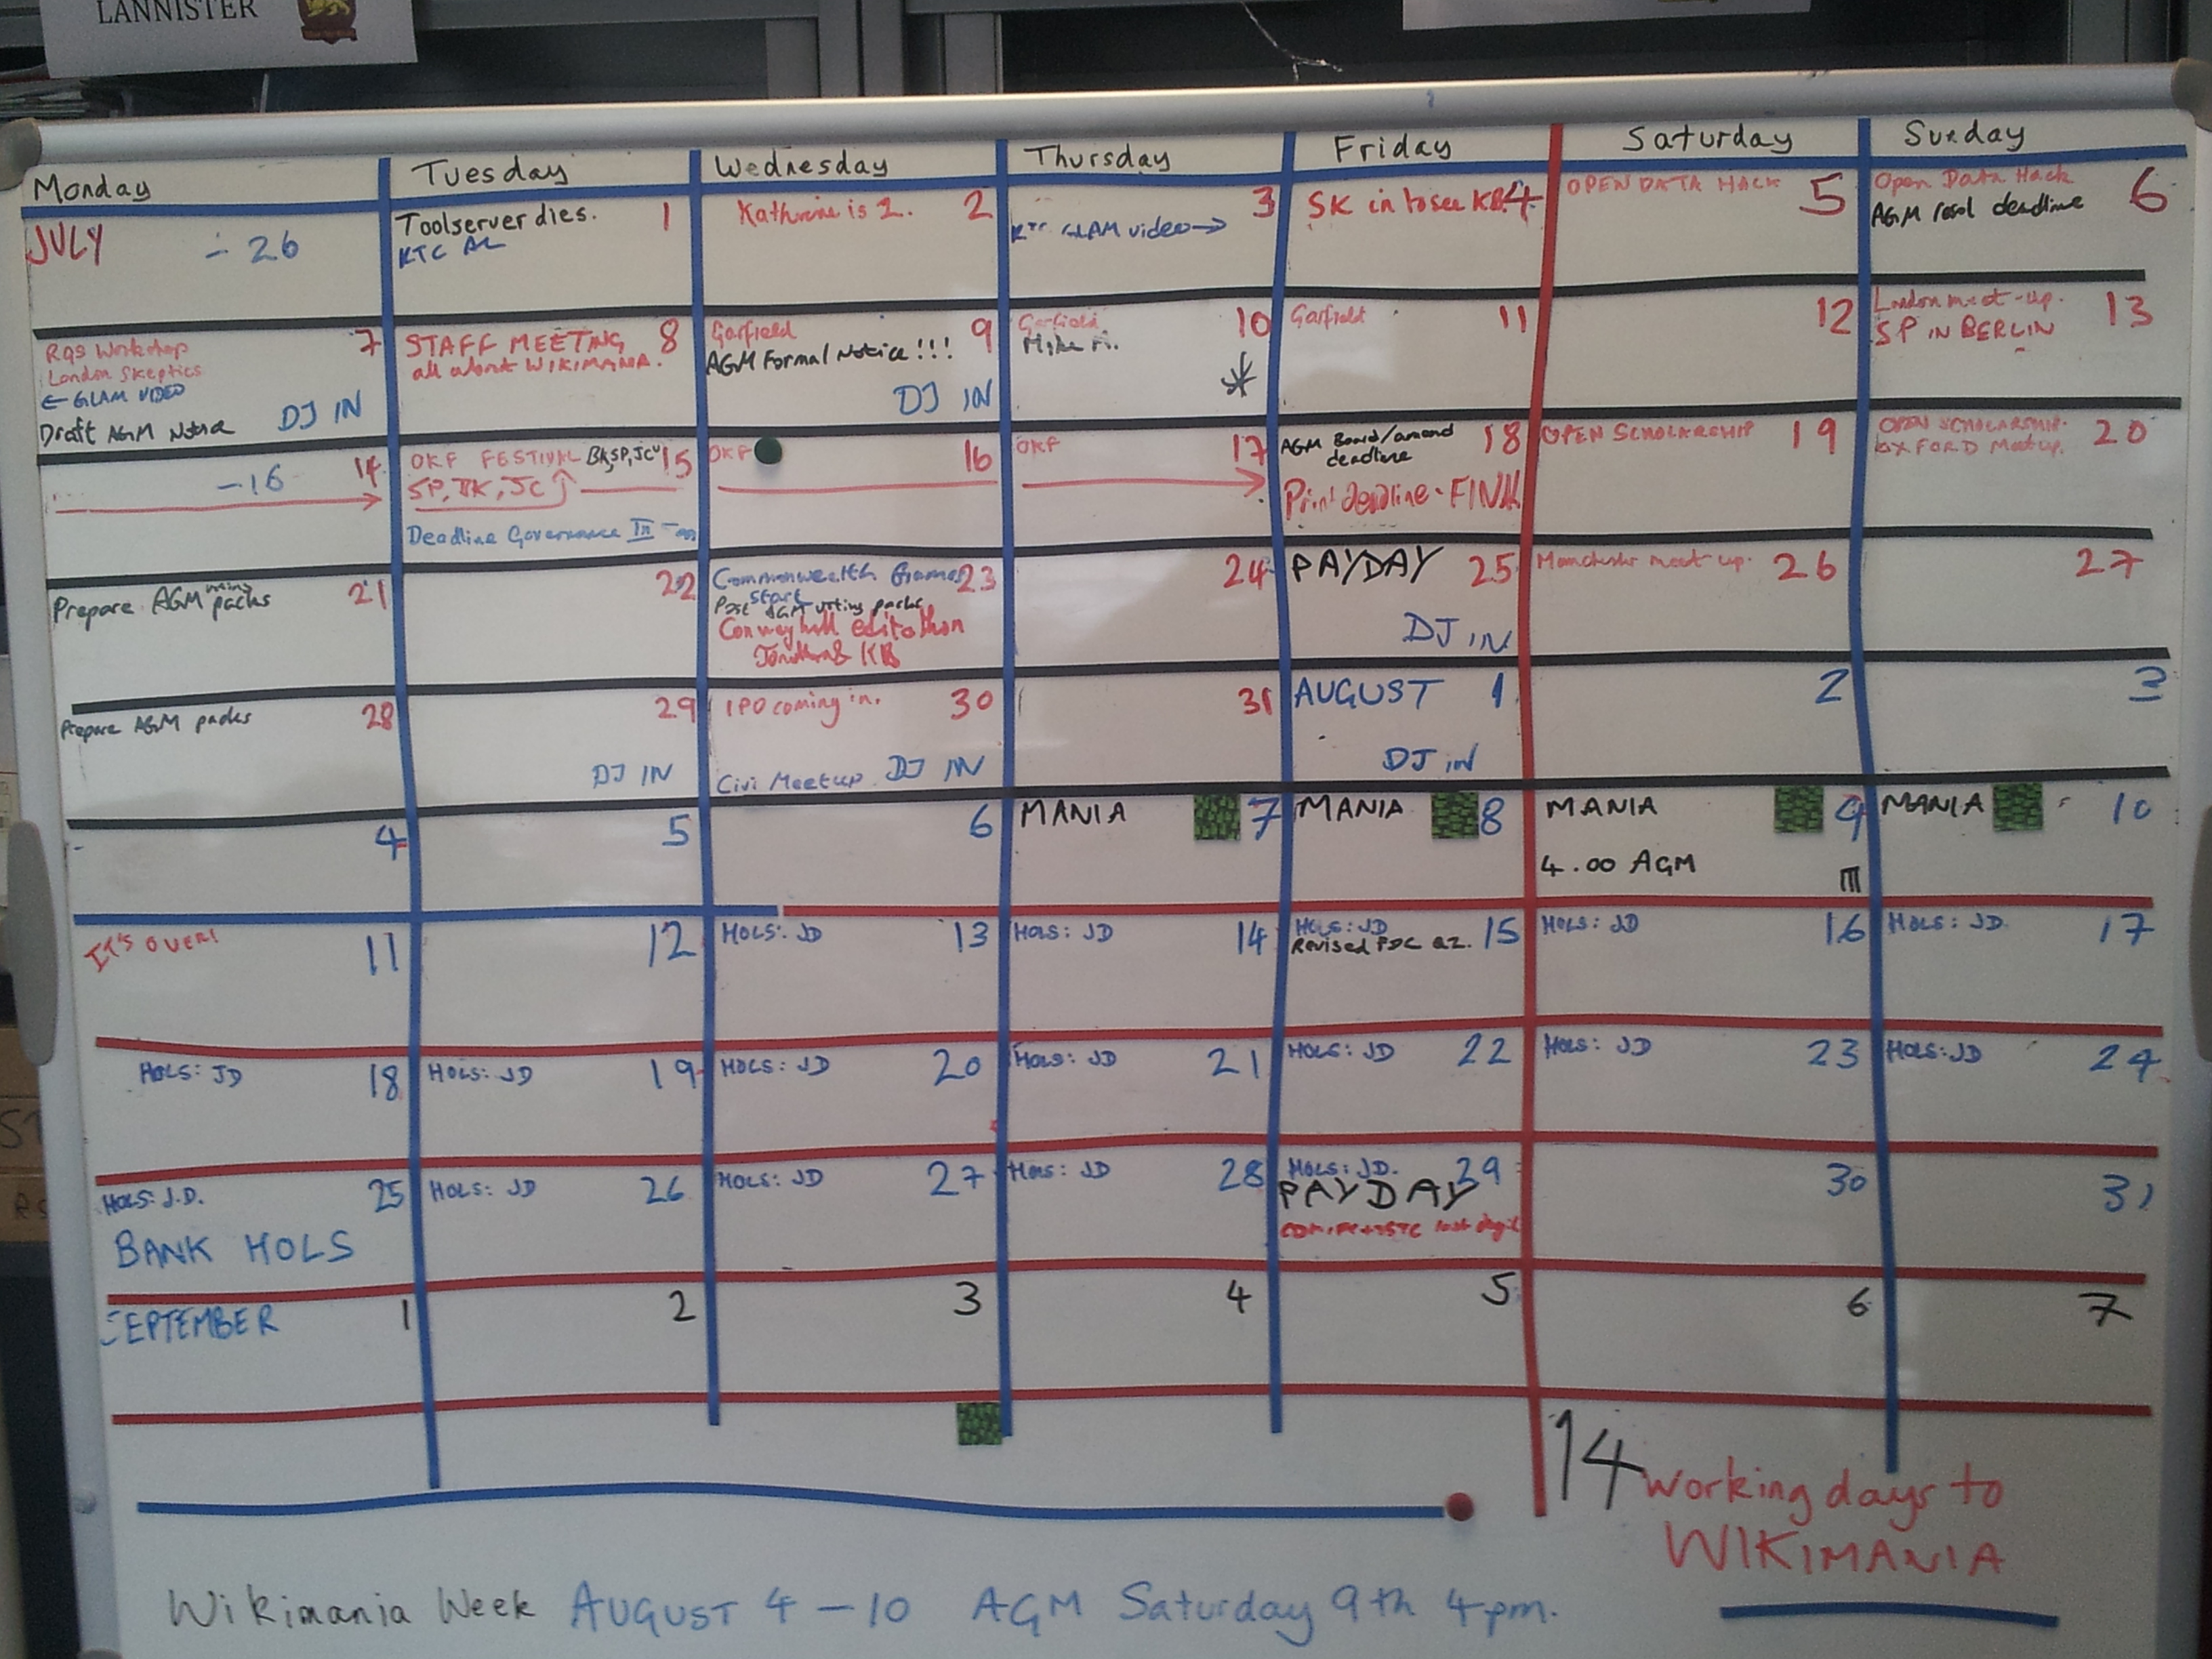 LANNISTER
Monday
Tuesday
Wednesday
Thursday
Friday
Saturday
Sunday
JULY
- 26
Toolserver dies. 1
KTC AL
Kathrine is 2. 2
3
GLAM video →
SK in to see KB 4
OPEN DATA HACK 5
Open Data Hack 6
AGM resol deadline
RGS Workshop 7
London Skeptics
← GLAM VIDEO
Draft AGM Notice DJ IN
STAFF MEETING 8
all about WIKIMANIA.
Garfield 9
AGM Formal Notice!!!
DJ IN
Garfield 10
Mike
Garfield 11
12
London meet-up. 13
SP IN BERLIN
-16 14
OKF FESTIVAL 15
SP, JC
Deadline Governance
OKF 16
OKF 17
AGM Board/amend 18
deadline
Print deadline - FINAL
OPEN SCHOLARSHIP 19
OPEN SCHOLARSHIP. 20
OXFORD Meetup.
Prepare AGM voting packs 21
22
Commonwealth Games 23
start
Post AGM voting packs
Conway hall editathon
KB
24
PAYDAY 25
DJ IN
Manchester meet up. 26
27
Prepare AGM packs 28
29
DJ IN
IPO coming in. 30
Civi Meetup DJ IN
31
AUGUST 1
DJ in
2
3
4
5
6
MANIA 7
MANIA 8
MANIA 9
4.00 AGM
MANIA 10
IT'S OVER! 11
12
HOLS: JD 13
HOLS: JD 14
HOLS: JD 15
Revised FDC
HOLS: JD 16
HOLS: JD. 17
HOLS: JD 18
HOLS: JD 19
HOLS: JD 20
HOLS: JD 21
HOLS: JD 22
HOLS: JD 23
HOLS: JD 24
HOLS: J.D. 25
BANK HOLS
HOLS: JD 26
HOLS: JD 27
HOLS: JD 28
HOLS: JD. 29
PAYDAY
30
31
SEPTEMBER 1
2
3
4
5
6
7
14 working days to
WIKIMANIA
Wikimania Week AUGUST 4 - 10 AGM Saturday 9th 4pm.